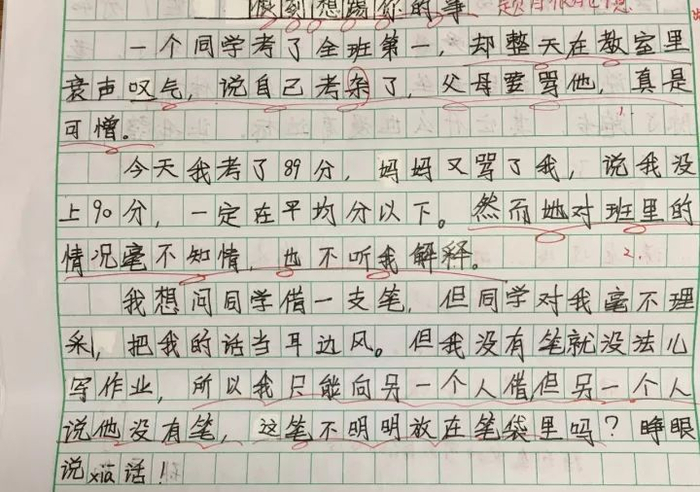 想踢你的事
一个同学考了全班第一，却整天在教室里
衰声叹气，说自己考杂了，父母要骂他，真是
可憎。
1.
今天我考了89分，妈妈又骂了我，说我没
上90分，一定在平均分以下。然而她对班里的
情况毫不知情，也不听我解释。
2.
我想问同学借一支笔，但同学对我毫不理
采，把我的话当耳边风。但我没有笔就没法儿
写作业，所以我只能向另一个人借，但另一个人
说他没有笔，这笔不明明放在笔袋里吗？睁眼
说xiā话！